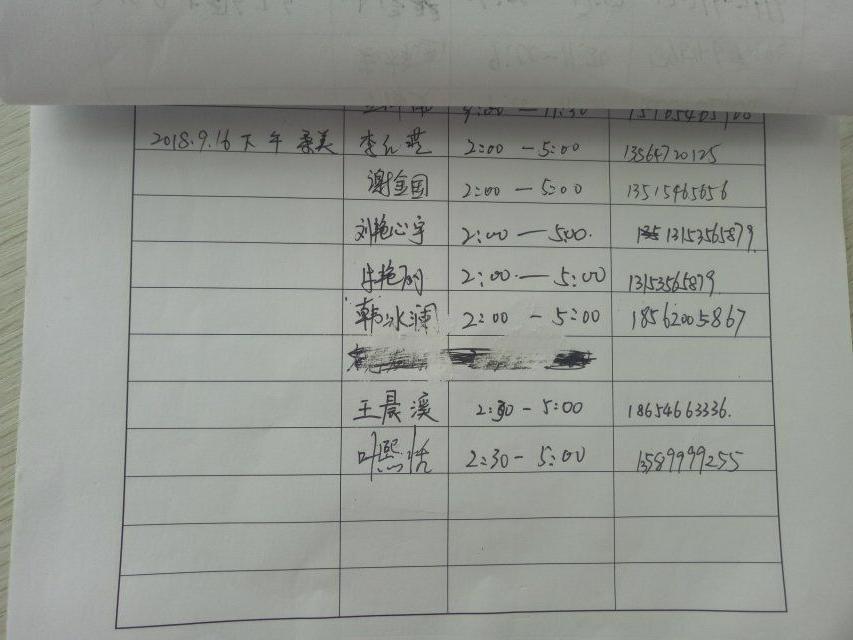 9:00 — 11:30
2018.9.16 下午 柔美 李红燕 2:00 — 5:00 13564720125
谢金国 2:00 — 5:00 13515465656
刘艳心宇 2:00 — 5:00. 13153565879
艳 2:00 — 5:00 13153565879
韩冰澜 2:00 — 5:00 18562005867
王晨溪 2:30 - 5:00 18654663336.
叶熙恬 2:30 - 5:00 13589999255